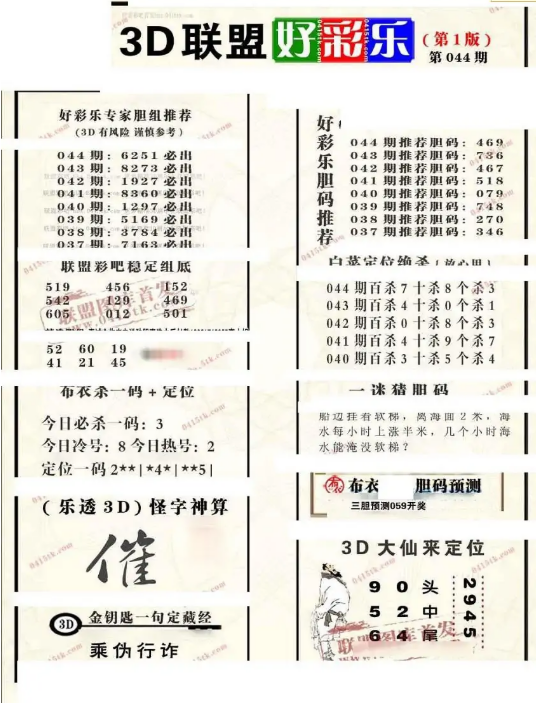 3D联盟好彩乐
(第1版)
第044期
好彩乐专家胆组推荐
(3D有风险 谨慎参考)
044期: 6251必出
043期: 8273必出
042期: 1927必出
041期: 8360必出
040期: 1297必出
039期: 5169必出
038期: 3784必出
037期: 7163必出
联盟彩吧稳定组底
519 456 152
542 129 469
605 012 501
52 60 19
41 21 45
布衣杀一码+定位
今日必杀一码: 3
今日冷号: 8 今日热号: 2
定位一码 2**|*4*|**5|
(乐透3D)怪字神算
催
3D 金钥匙一句定藏经
乘伪行诈
好彩乐胆码推荐
044期推荐胆码: 469
043期推荐胆码: 736
042期推荐胆码: 467
041期推荐胆码: 518
040期推荐胆码: 079
039期推荐胆码: 748
038期推荐胆码: 270
037期推荐胆码: 346
白菜定位绝杀(放心用)
044期百杀7十杀8个杀3
043期百杀4十杀0个杀1
042期百杀0十杀8个杀3
041期百杀4十杀9个杀7
040期百杀3十杀5个杀4
一迷猪胆码
船边挂着软梯, 离海面2米, 海
水每小时上涨半米, 几个小时海
水能淹没软梯?
布衣 胆码预测
三胆预测059开奖
3D大仙来定位
9 0 头
5 2 中
6 4 尾
2945